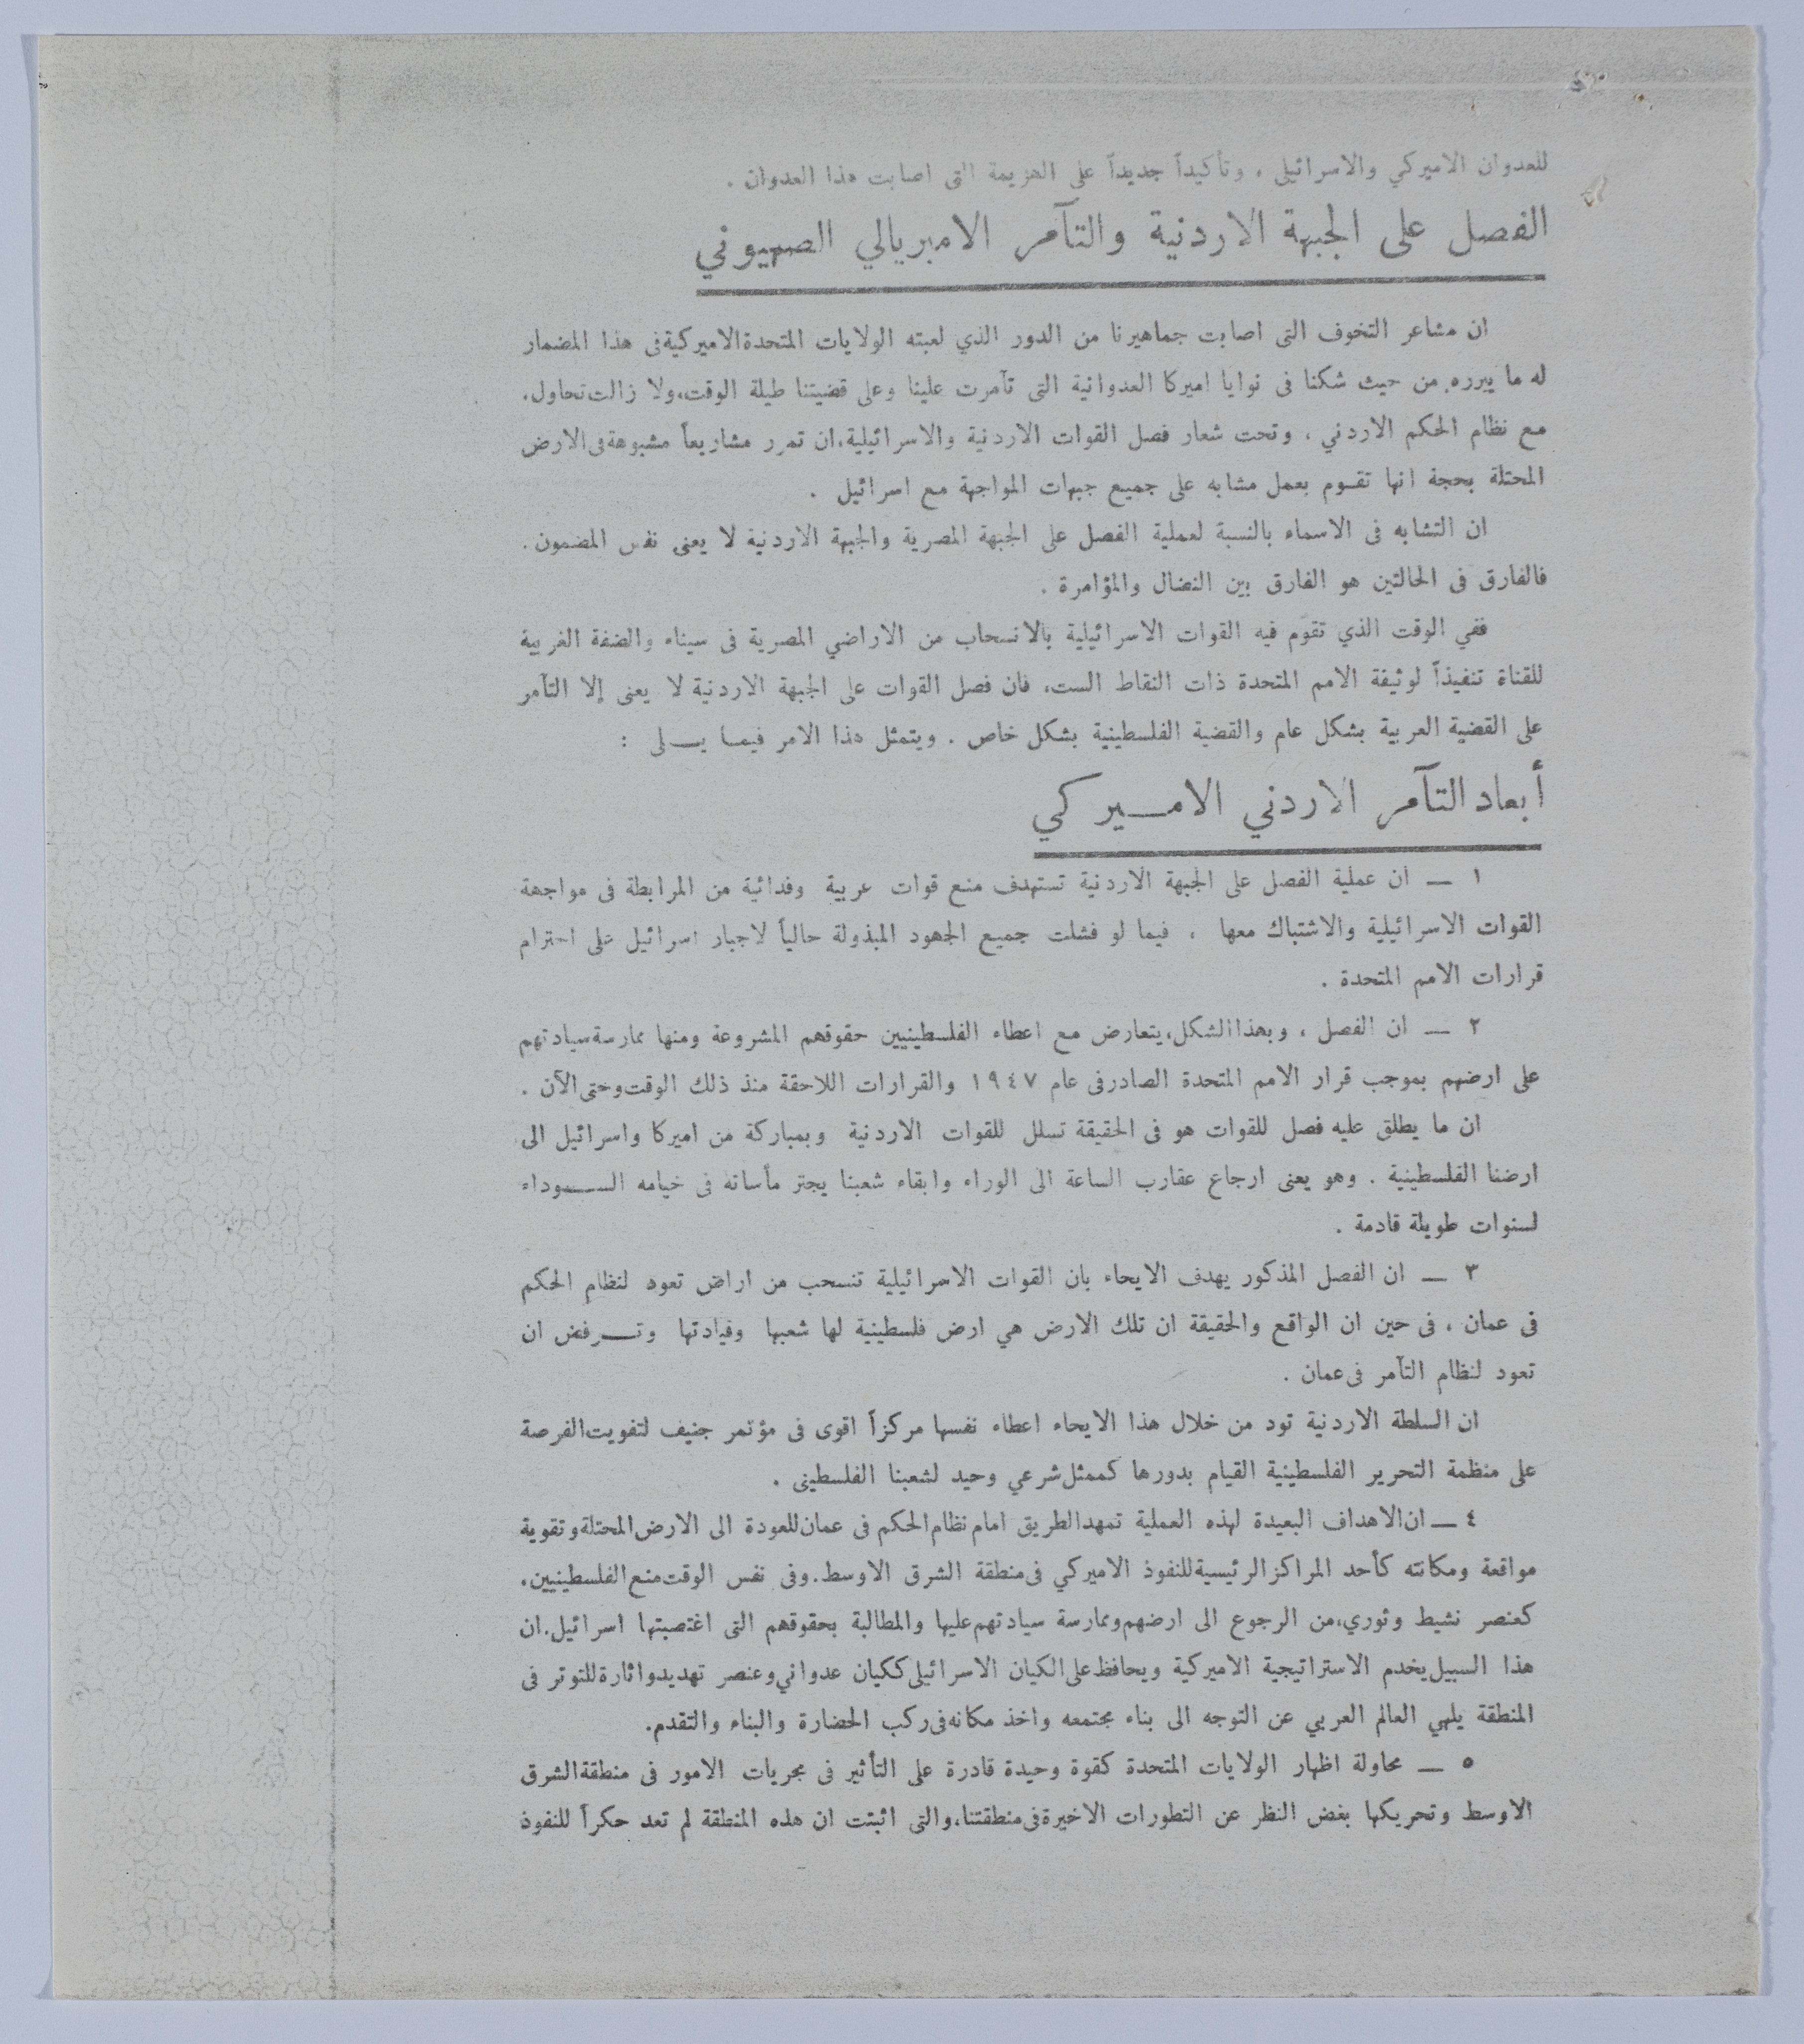 للعدوان الاميركي والاسرائيلى ، وتأكيداً جديداً على الهزيمة التى اصابت هذا العدوان .
الفصل على الجبهة الاردنية والتآمر الامبريالي الصهيوني
ان مشاعر التخوف التى اصابت جماهيرنا من الدور الذي لعبته الولايات المتحدة الاميركية فى هذا المضمار
له ما يبرره. من حيث شكنا فى نوايا اميركا العدوانية التى تآمرت علينا وعلى قضيتنا طيلة الوقت، ولا زالت تحاول،
مع نظام الحكم الاردني ، وتحت شعار فصل القوات الاردنية والاسرائيلية، ان تمرر مشاريعاً مشبوهة فى الارض
المحتلة بحجة انها تقوم بعمل مشابه على جميع جبهات المواجهة مع اسرائيل .
ان التشابه فى الاسماء بالنسبة لعملية الفصل على الجبهة المصرية والجبهة الاردنية لا يعنى نفس المضمون .
فالفارق فى الحالتين هو الفارق بين النضال والمؤامرة .
ففي الوقت الذي تقوم فيه القوات الاسرائيلية بالانسحاب من الاراضي المصرية فى سيناء والضفة الغربية
للقناة تنفيذاً لوثيقة الامم المتحدة ذات النقاط الست، فان فصل القوات على الجبهة الاردنية لا يعنى إلا التآمر
على القضية العربية بشكل عام والقضية الفلسطينية بشكل خاص . ويتمثل هذا الامر فيما يـــلى :
أبعاد التآمر الاردني الامـــيركي
١ ــ ان عملية الفصل على الجبهة الاردنية تستهدف منع قوات عربية وفدائية من المرابطة فى مواجهة
القوات الاسرائيلية والاشتباك معها ، فيما لو فشلت جميع الجهود المبذولة حالياً لاجبار اسرائيل على احترام
قرارات الامم المتحدة .
٢ ــ ان الفصل ، وبهذا الشكل، يتعارض مع اعطاء الفلسطينيين حقوقهم المشروعة ومنها ممارسة سيادتهم
على ارضهم بموجب قرار الامم المتحدة الصادر فى عام ١٩٤٧ والقرارات اللاحقة منذ ذلك الوقت وحتى الآن .
ان ما يطلق عليه فصل للقوات هو فى الحقيقة تسلل للقوات الاردنية وبمباركة من اميركا واسرائيل الى
ارضنا الفلسطينية . وهو يعنى ارجاع عقارب الساعة الى الوراء وابقاء شعبنا يجتر مأساته فى خيامه الســـوداء
لسنوات طويلة قادمة .
٣ ــ ان الفصل المذكور يهدف الايحاء بان القوات الاسرائيلية تنسحب من اراض تعود لنظام الحكم
فى عمان ، فى حين ان الواقع والحقيقة ان تلك الارض هي ارض فلسطينية لها شعبها وقيادتها وتـــرفض ان
تعود لنظام التآمر فى عمان .
ان السلطة الاردنية تود من خلال هذا الايحاء اعطاء نفسها مركزاً اقوى فى مؤتمر جنيف لتفويت الفرصة
على منظمة التحرير الفلسطينية القيام بدورها كممثل شرعي وحيد لشعبنا الفلسطينى .
٤ ــ ان الاهداف البعيدة لهذه العملية تمهد الطريق امام نظام الحكم فى عمان للعودة الى الارض المحتلة وتقوية
مواقعة ومكانته كأحد المراكز الرئيسية للنفوذ الاميركي فى منطقة الشرق الاوسط. وفى نفس الوقت منع الفلسطينيين،
كعنصر نشيط وثوري، من الرجوع الى ارضهم وممارسة سيادتهم عليها والمطالبة بحقوقهم التى اغتصبتها اسرائيل. ان
هذا السبيل يخدم الاستراتيجية الاميركية ويحافظ على الكيان الاسرائيلى ككيان عدواني وعنصر تهديد واثارة للتوتر فى
المنطقة يلهي العالم العربي عن التوجه الى بناء مجتمعه واخذ مكانه فى ركب الحضارة والبناء والتقدم.
٥ ــ محاولة اظهار الولايات المتحدة كقوة وحيدة قادرة على التأثير فى مجريات الامور فى منطقة الشرق
الاوسط وتحريكها بغض النظر عن التطورات الاخيرة فى منطقتنا، والتى اثبتت ان هذه المنطقة لم تعد حكراً للنفوذ